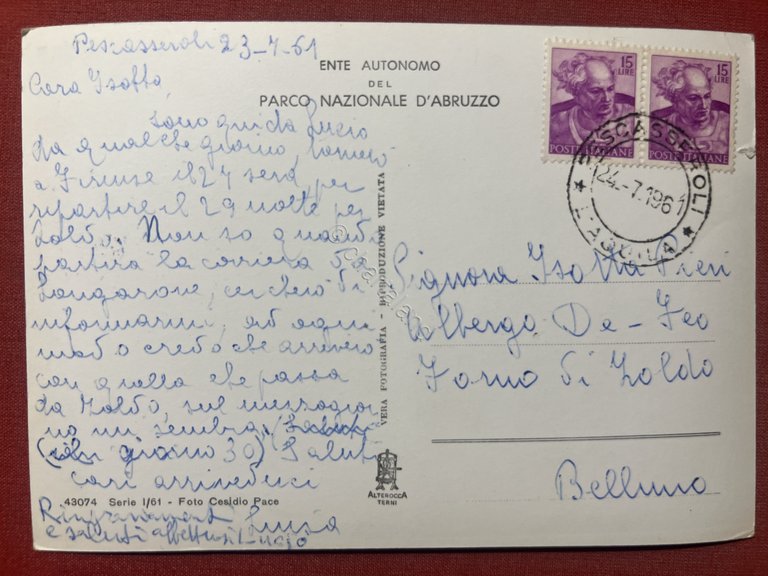 Pescasseroli 23-7-61
Cara Isotta,
sono qui da Lucio
da qualche giorno, tornerò
a Firenze il 27 sera per
ripartire il 29 notte per
Zoldo. Non so quando
partirà la corriera da
Longarone, cercherò di
informarmi, ad ogni
modo credo che arriverò
con quella che passa
da Zoldo, sul mezzogior
no mi sembra,
giorno 30) Saluti
cari arrivederci
Luisa
Ringraziamenti
e saluti affettuosi Lucio
43074 Serie I/61 - Foto Cesidio Pace
ENTE AUTONOMO
DEL
PARCO NAZIONALE D'ABRUZZO
VERA FOTOGRAFIA - RIPRODUZIONE VIETATA
ALTEROCCA
TERNI
15
LIRE
POSTE ITALIANE
15
LIRE
POSTE ITALIANE
PESCASSEROLI
24.-7.1961
* L'AQUILA *
Signora Isotta Pieri
Albergo De-Feo
Forno di Zoldo
Belluno